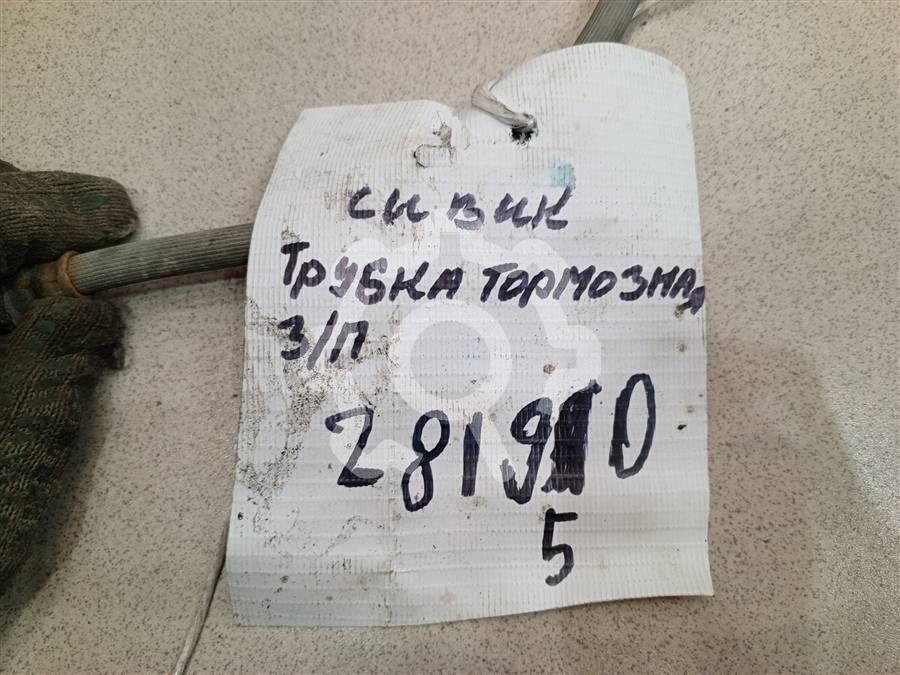 Сивик
Трубка тормозная
З/П
28190
5